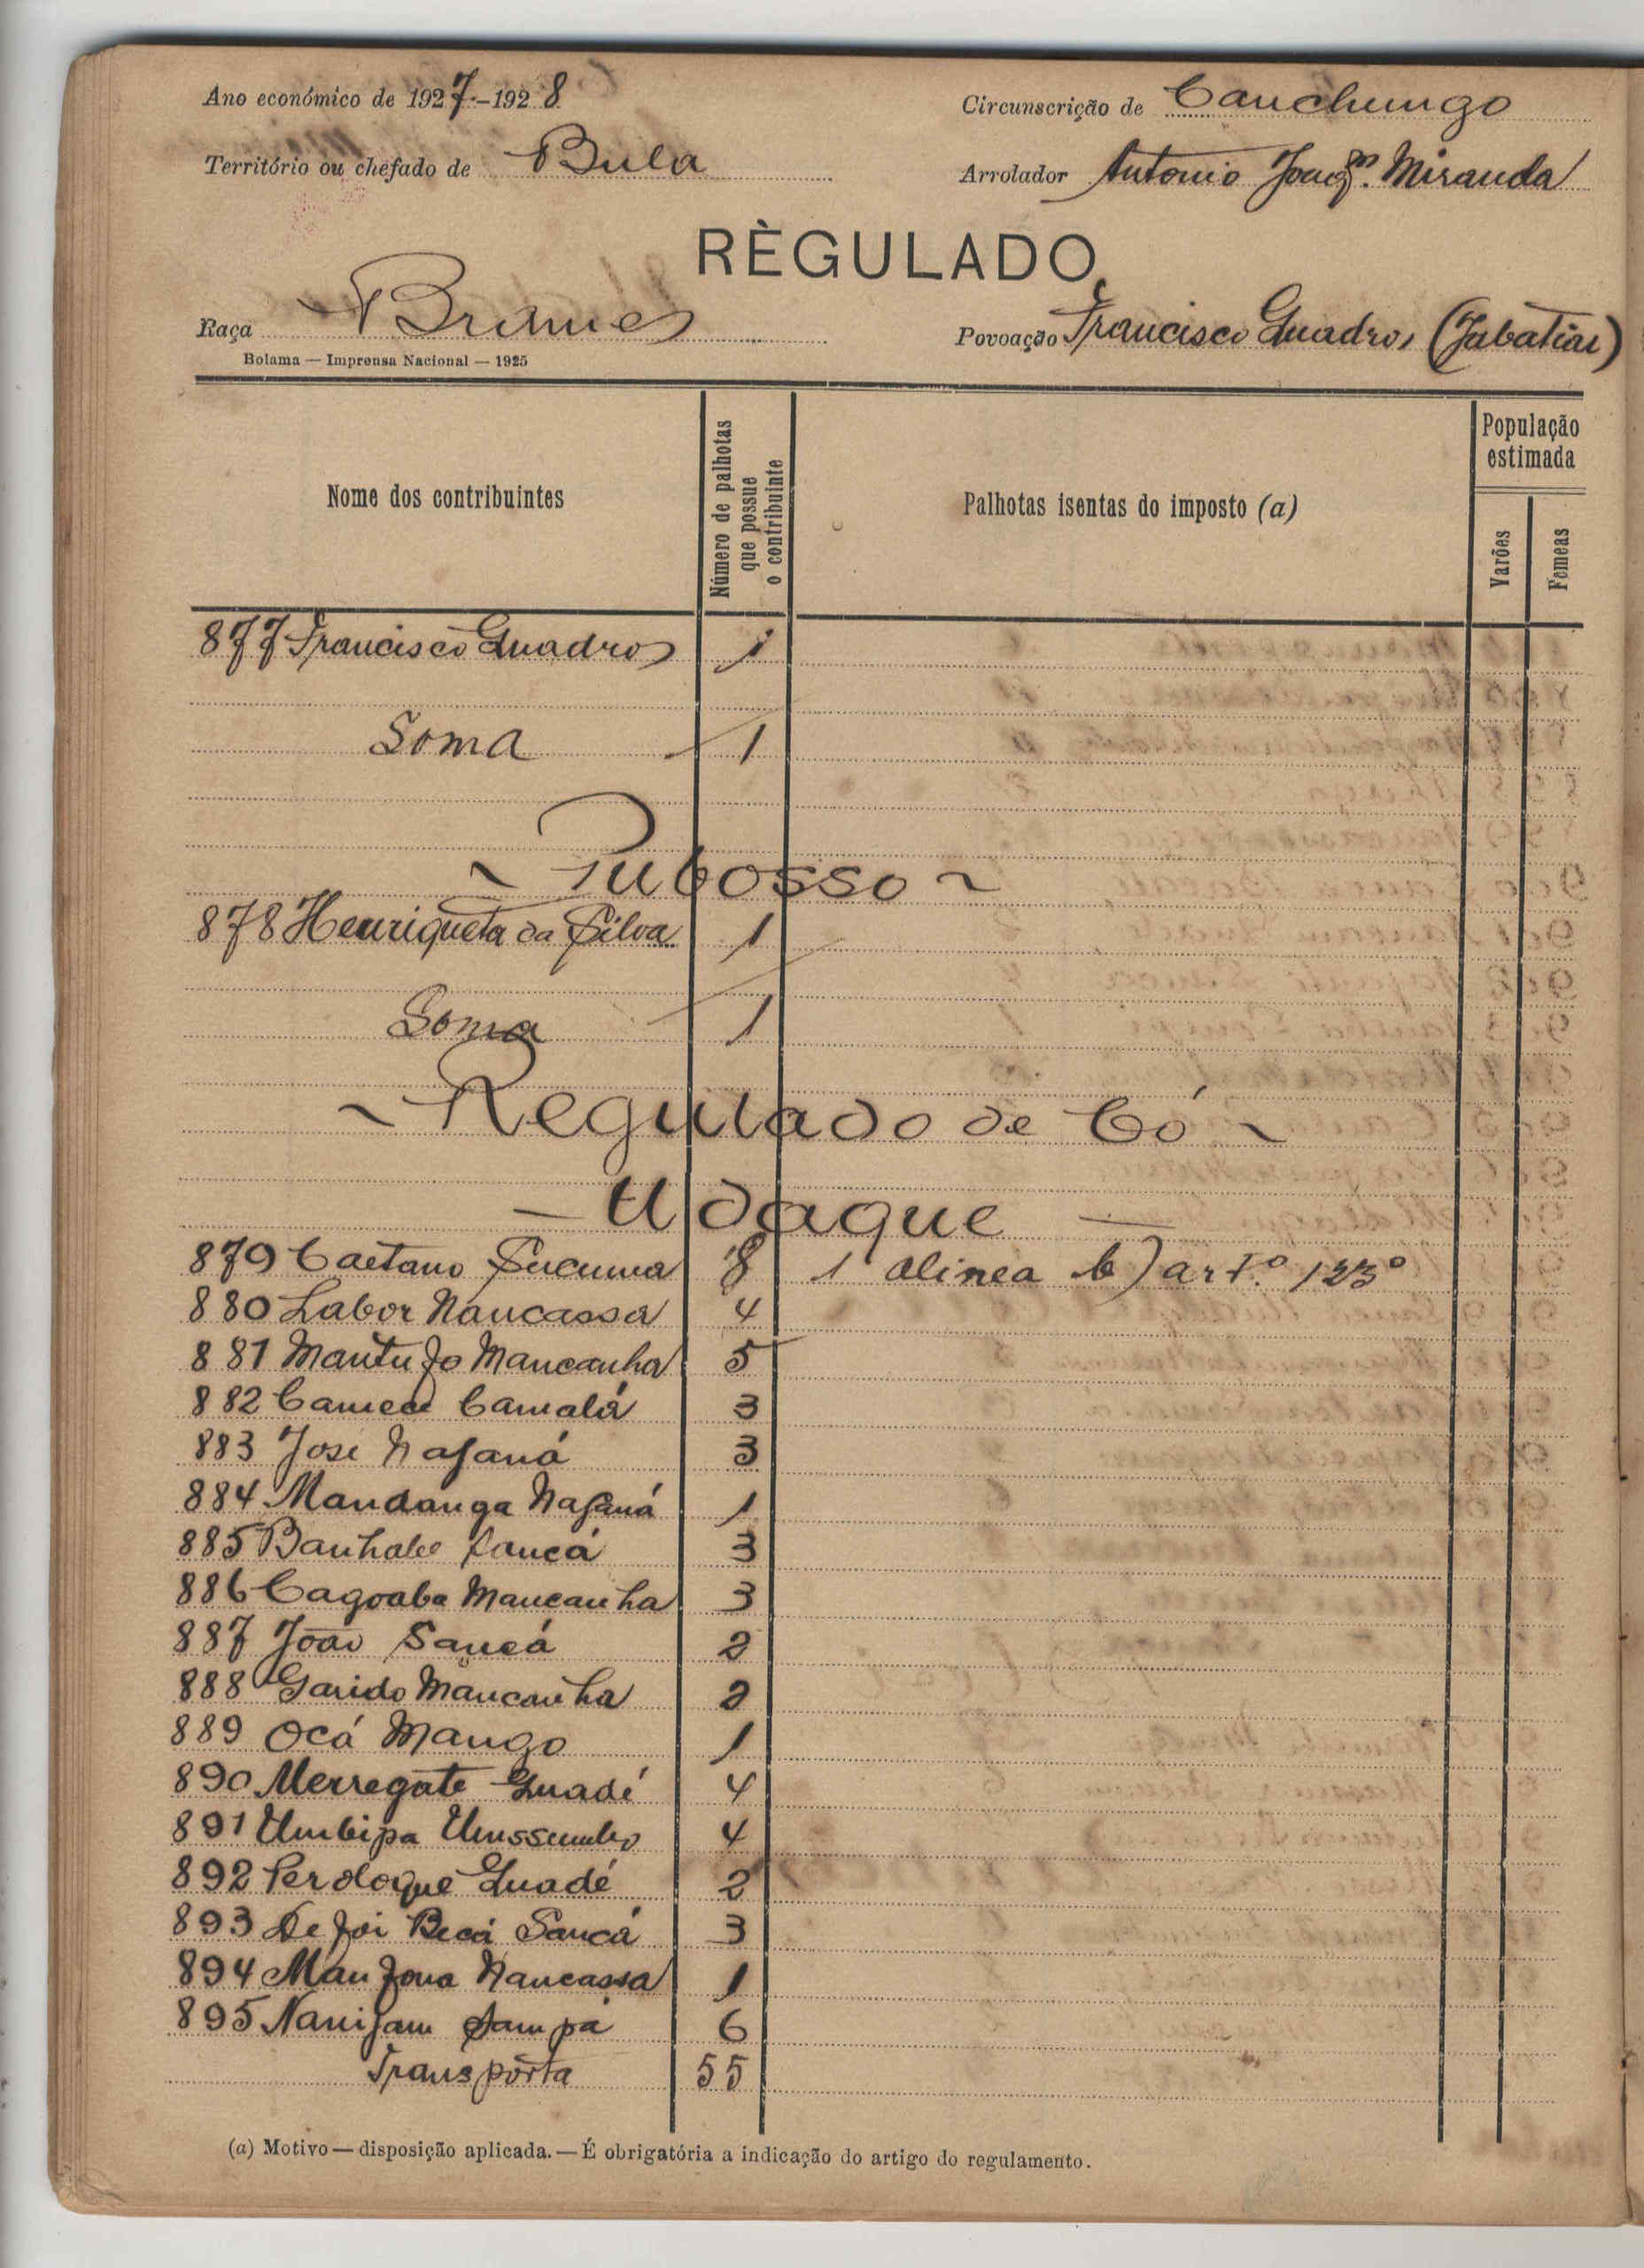 Ano económico de 1927-1928
Circunscrição de Canchungo
Território ou chefado de Bula
Arrolador Antonio Joaqm. Miranda
RÈGULADO
Raça Brames
Povoação Francisco Quadros (Jabatiar)
Bolama — Imprensa Nacional — 1925
Nome dos contribuintes
Número de palhotas que possue o contribuinte
Palhotas isentas do imposto (a)
População estimada
Varões
Femeas
877 Francisco Quadros 1
Soma 1
~ Pubosso ~
878 Henriqueta da Silva 1
Soma 1
~ Regulado de Có ~
— Udaque —
879 Caetano Sucuma 8 1 alinea b) art.º 123º
880 Labor Nancassa 4
881 Mantujo Mancanha 5
882 Camalá 3
883 José Nafaná 3
884 Mandanga Nafaná 1
885 Banhale Sancá 3
886 Cagoaba Mancanha 3
887 João Sancá 2
888 Garido Mancanha 2
889 Ocá Mango 1
890 Merregate Quadé 4
891 Umbipa 4
892 Perdoque Quadé 2
893 Dejoi Becá Sancá 3
894 Manjona Nancassa 1
895 Nanijam Sampá 6
Transpórta 55
(a) Motivo — disposição aplicada. — É obrigatória a indicação do artigo do regulamento.